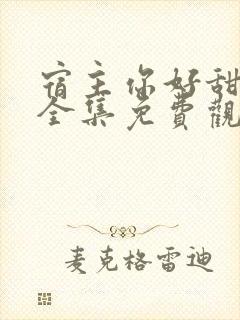 宿主你好甜
全集免費觀
麦克格雷迪